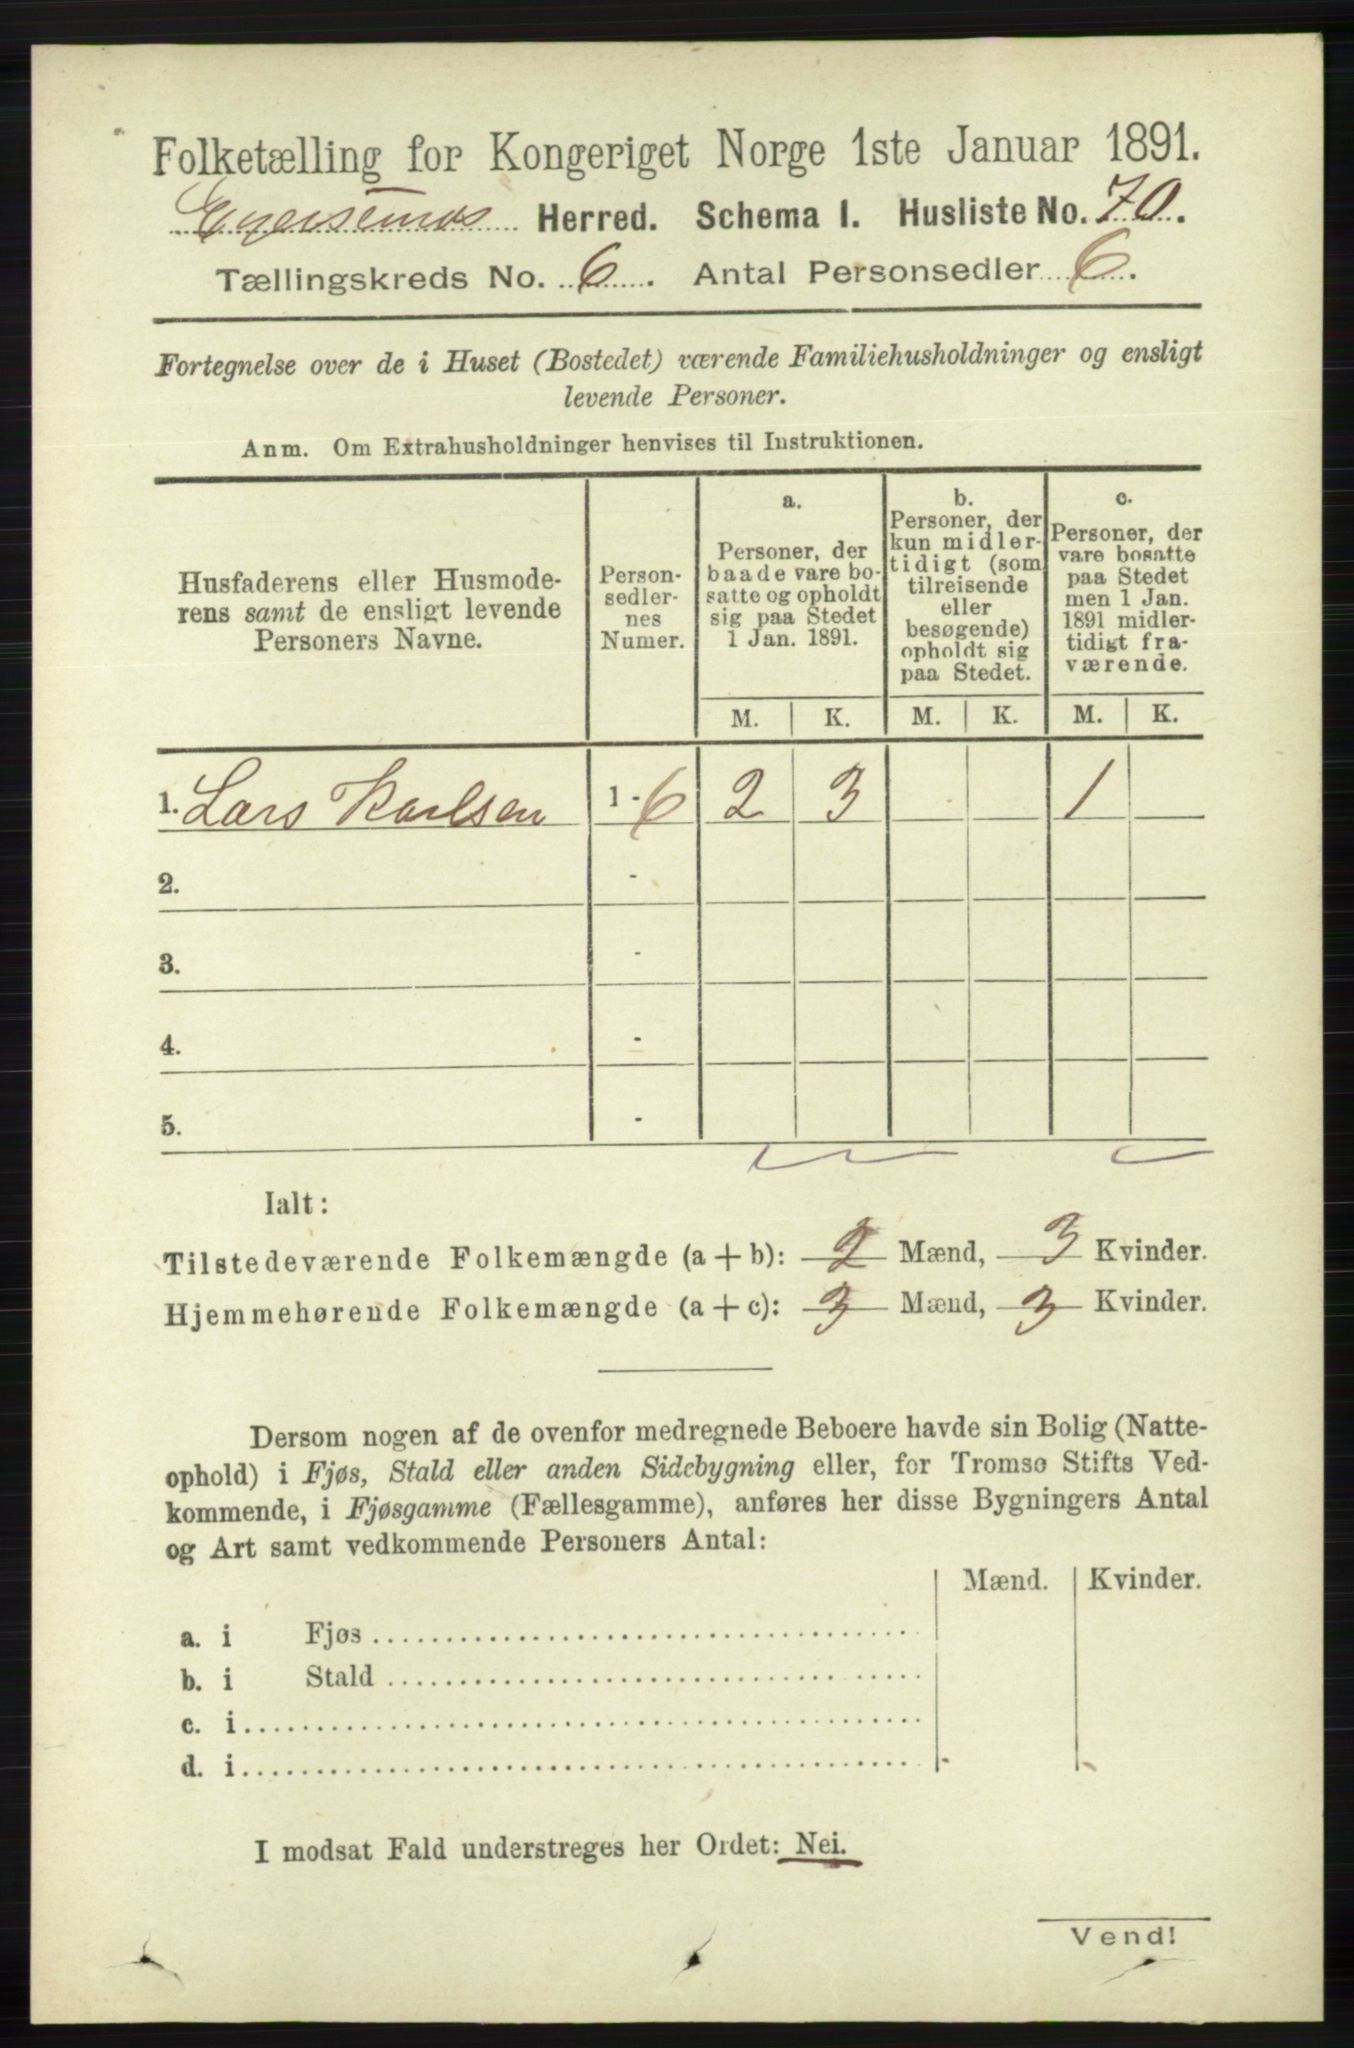 Folketælling for Kongeriget Norge 1ste Januar 1891.
Egersunds Herred. Schema I. Husliste No. 70.
Tællingskreds No. 6. Antal Personsedler 6.
Fortegnelse over de i Huset (Bostedet) værende Familiehusholdninger og ensligt
levende Personer.
Anm. Om Extrahusholdninger henvises til Instruktionen.
Husfaderens eller Husmode-
rens samt de ensligt levende
Personers Navne.
Person-
sedler-
nes
Numer.
a.
Personer, der
baade vare bo-
satte og opholdt
sig paa Stedet
1 Jan. 1891.
b.
Personer, der
kun midler-
tidigt (som
tilreisende
eller
besøgende)
opholdt sig
paa Stedet.
c.
Personer, der
vare bosatte
paa Stedet
men 1 Jan.
1891 midler-
tidigt fra-
værende.
M. K. M. K. M. K.
1. Lars Karlsen 1 - 6 2 3 1
2. -
3. -
4. -
5. -
Ialt:
Tilstedeværende Folkemængde (a + b): 2 Mænd, 3 Kvinder.
Hjemmehørende Folkemængde (a + c): 3 Mænd, 3 Kvinder.
Dersom nogen af de ovenfor medregnede Beboere havde sin Bolig (Natte-
ophold) i Fjøs, Stald eller anden Sidebygning eller, for Tromsø Stifts Ved-
kommende, i Fjøsgamme (Fællesgamme), anføres her disse Bygningers Antal
og Art samt vedkommende Personers Antal:
Mænd. Kvinder.
a. i Fjøs
b. i Stald
c. i
d. i
I modsat Fald understreges her Ordet: Nei.
Vend!